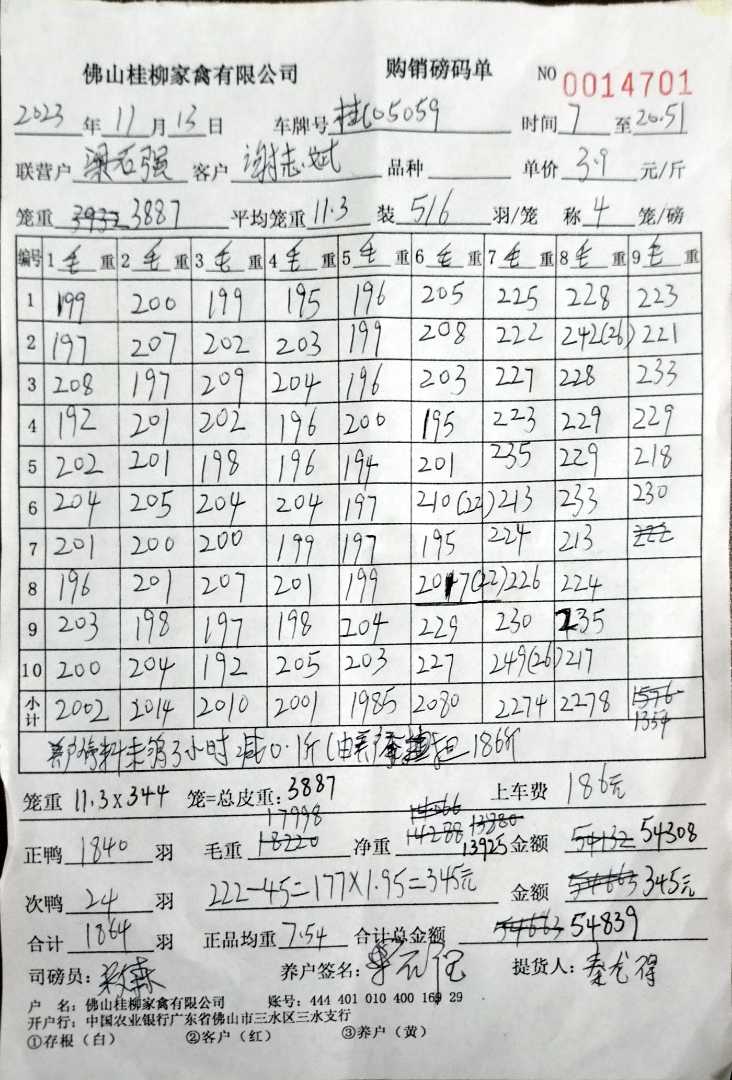 佛山桂柳家禽有限公司 购销磅码单 NO 0014701
2023年11月13日 车牌号 桂C05059 时间 7 至 20.51
联营户 梁石强 客户 谢志斌 品种 单价 3.9 元/斤
笼重 3932 3887 平均笼重 11.3 装 5/6 羽/笼 称 4 笼/磅
编号 1毛重 2毛重 3毛重 4毛重 5毛重 6毛重 7毛重 8毛重 9毛重
1 199 200 199 195 196 205 225 228 223
2 197 207 202 203 199 208 222 242(26) 221
3 208 197 209 204 196 203 227 228 233
4 192 201 202 196 200 195 223 229 229
5 202 201 198 196 194 201 235 229 218
6 204 205 204 204 197 210(22) 213 233 230
7 201 200 200 199 197 195 224 213 222
8 196 201 207 201 199 207(22) 226 224
9 203 198 197 198 204 229 230 235
10 200 204 192 205 203 227 249(26) 217
小计 2002 2014 2010 2001 1985 2080 2274 2278 1576
1354
料未消3小时减0.1斤(由养户 担 186斤
笼重 11.3×344 笼=总皮重: 3887 上车费 186元
17998 14066 13880
正鸭 1840 羽 毛重 18220 净重 14288 13925 金额 54132 54308
次鸭 24 羽 222-45=177×1.95=345元 金额 345元
合计 1864 羽 正品均重 7.54 合计总金额 54683 54839
司磅员: 养户签名: 提货人: 秦尤得
户 名: 佛山桂柳家禽有限公司 账号: 444 401 010 400 169 29
开户行: 中国农业银行广东省佛山市三水区三水支行
①存根(白) ②客户(红) ③养户(黄)